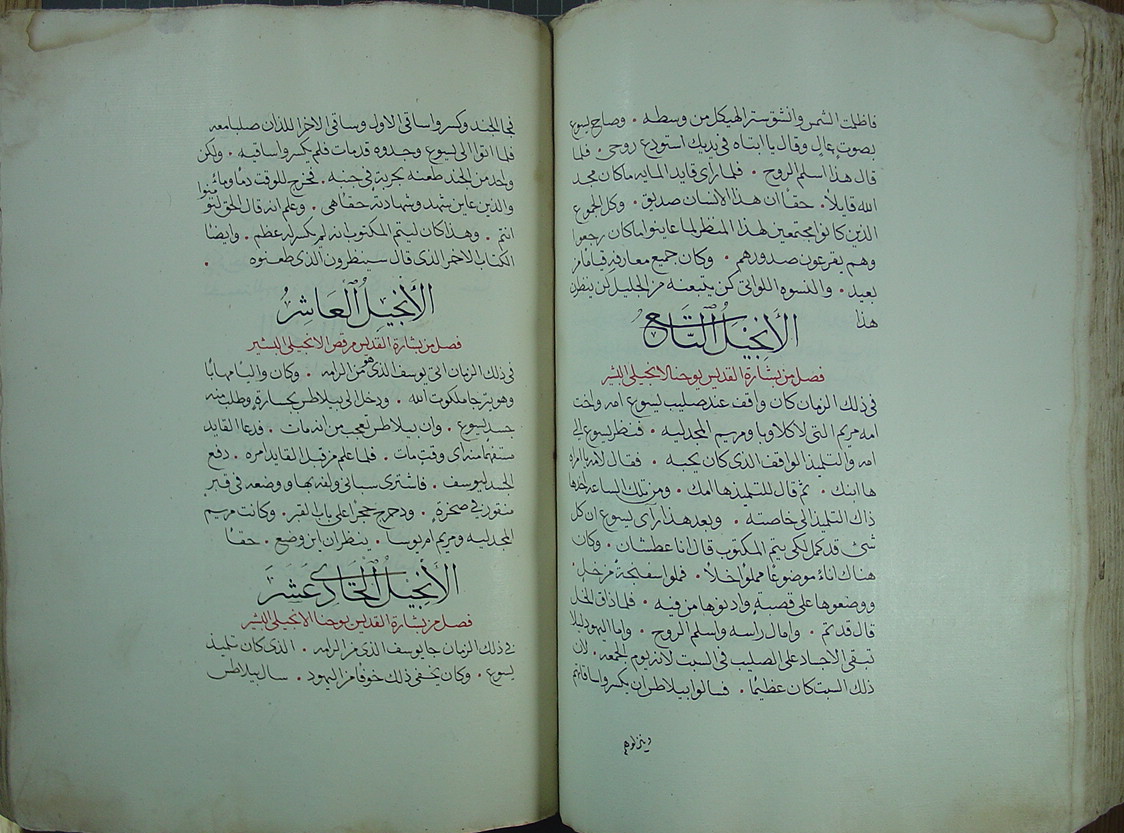 فاظلمت الشمس وانشق ستر الهيكل من وسطه . وصاح يسوع
بصوتٍ عالٍ وقال يا ابتاه في يديك استودع روحي . فلما
قال هذا اسلم الروح . فلما راى قايد المايه ما كان مجد
الله قايلاً . حقاً ان هذا الانسان صديق . وكل الجموع
الذين كانوا مجتمعين لهذا المنظر لما عاينوا ما كان رجعوا
وهم يقرعون صدورهم . وكان جميع معارفه قياماً من
بعيد . والنسوه اللواتي كن يتبعنه من الجليل كن ينظرن
هذا
الأنجيل التاسع
فصل من بشارة القديس يوحنا الانجيلي البشير
في ذلك الزمان كان واقف عند صليب يسوع امه واخت
امه مريم التي لاكلاوبا ومريم المجدليه . فنظر يسوع الى
امه والتلميذ الواقف الذي كان يحبه . فقال لامه يا امراه
ها ابنك . ثم قال للتلميذ ها امك . ومن تلك الساعه اخذها
ذاك التلميذ الى خاصته . وبعد هذا راى يسوع ان كل
شئ قد كمل لكي يتم المكتوب قال انا عطشان . وكان
هناك اناءً موضوعاً مملواً خلاً . فملوا سفنجة من خل .
ووضعوها على قصبةٍ وادنوها من فيه . فلما ذاق الخل
قال قد تم . وامال راسه واسلم الروح . واما اليهود ليلا
تبقى الاجساد على الصليب في السبت لانه يوم الجمعه . لان
ذلك السبت كان عظيماً . فسالوا بيلاطس ان يكسروا ساقاتهم
وينزلوهم
فجا الجند وكسروا ساقي الاول وساقي الاخر اللذان صلبا معه
فلما اتوا الى يسوع وجدوه قد مات فلم يكسروا ساقيه . ولكن
واحد من الجند طعنه بحربةٍ في جنبه . فخرج للوقت دماً وماءً .
والذين عاين شهد وشهادته حقاً هي . وعلم انه قال الحق لتومنوا
انتم . وهذا كان ليتم المكتوب انه لم يكسر له عظم . وايضاً
الكتاب الاخر الذي قال سينظرون الذي طعنوه .
الأنجيل العاشر
فصل من بشارة القديس مرقص الانجيلي البشير
في ذلك الزمان اتى يوسف الذي هو من الرامه . وكان والياً مهاباً
وهو يترجا ملكوت الله . ودخل الى بيلاطس بجسارةٍ وطلب منه
جسد يسوع . وان بيلاطس تعجب من انه مات . فدعا القايد
مستفهماً منه اي وقت مات . فلما علم من قبل القايد امره . دفع
الجسد ليوسف . فاشترى سباني ولفه بها ووضعه في قبرٍ
منقور في صخرةٍ . ودحرج حجراً على باب القبر . وكانت مريم
المجدليه ومريم ام يوسا . ينظران اين وضع . حقاً
الأنجيل الحادي عشر
فصل من بشارة القديس يوحنا الانجيلي البشير
في ذلك الزمان جا يوسف الذي من الرامه . الذي كان تلميذ
يسوع . وكان يخفي ذلك خوفاً من اليهود . سال بيلاطس